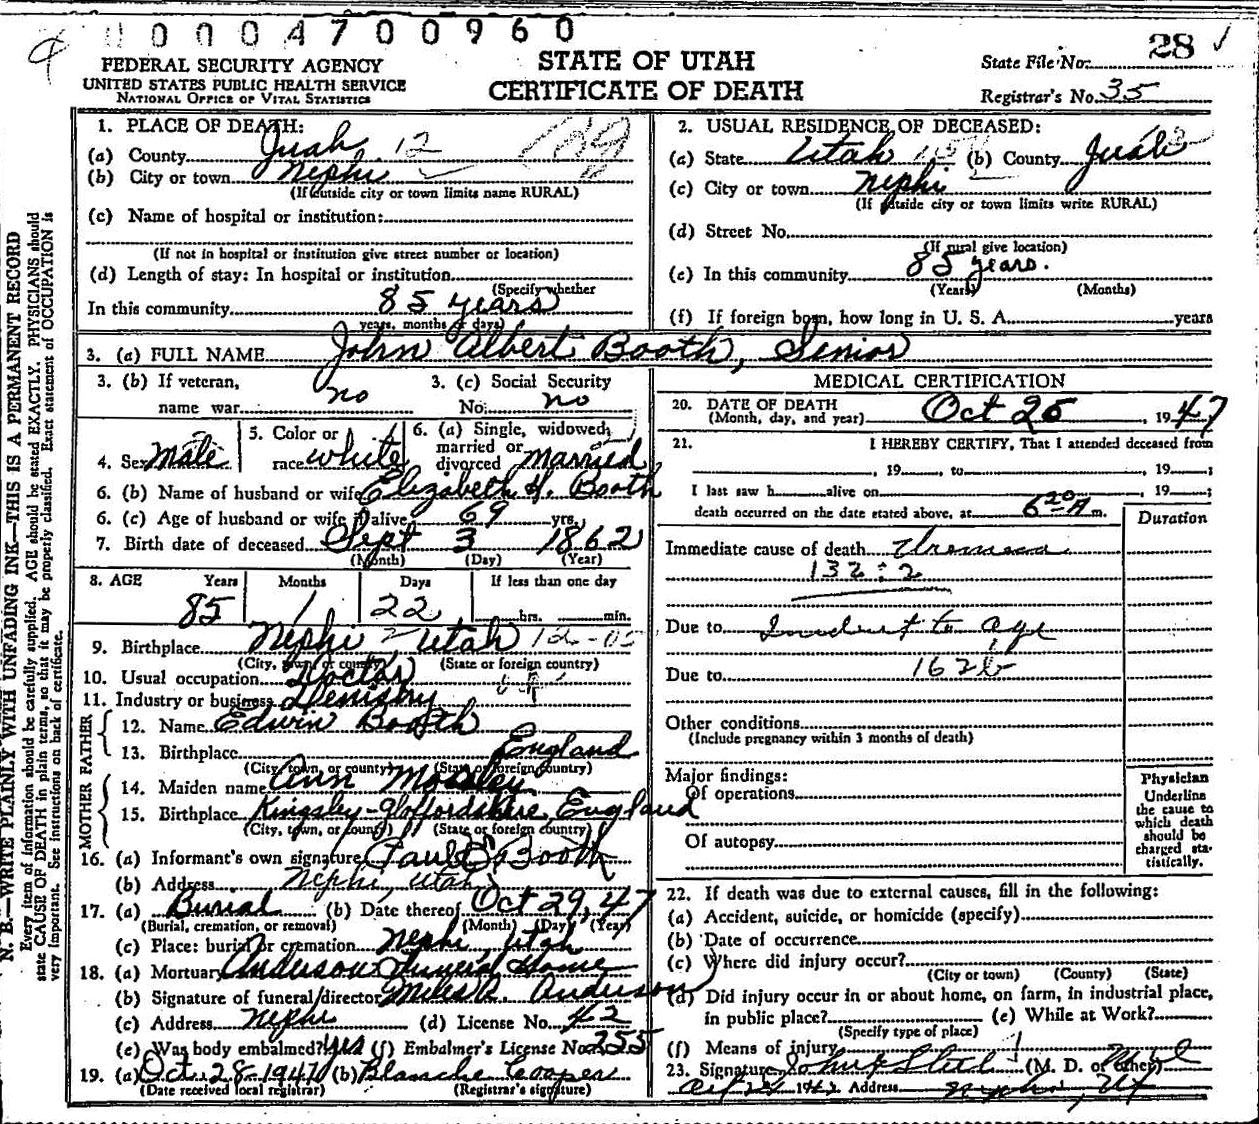 00004700960
28
FEDERAL SECURITY AGENCY
UNITED STATES PUBLIC HEALTH SERVICE
NATIONAL OFFICE OF VITAL STATISTICS
STATE OF UTAH
CERTIFICATE OF DEATH
State File No.
Registrar's No. 35
N. B.—WRITE PLAINLY WITH UNFADING INK—THIS IS A PERMANENT RECORD
Every item of information should be carefully supplied. AGE should be stated EXACTLY. PHYSICIANS should
state CAUSE OF DEATH in plain terms, so that it may be properly classified. Exact statement of OCCUPATION is
very important. See instructions on back of certificate.
1. PLACE OF DEATH:
(a) County Juab 12
(b) City or town Nephi
(If outside city or town limits name RURAL)
(c) Name of hospital or institution:
(If not in hospital or institution give street number or location)
(d) Length of stay: In hospital or institution
(Specify whether
In this community 85 years
years, months or days)
2. USUAL RESIDENCE OF DECEASED:
(a) State Utah (b) County Juab
(c) City or town Nephi
(If outside city or town limits write RURAL)
(d) Street No.
(If rural give location)
(e) In this community 85 years.
(Years) (Months)
(f) If foreign born, how long in U. S. A. years
3. (a) FULL NAME John Albert Booth, Senior
3. (b) If veteran, name war no
3. (c) Social Security No. no
4. Sex Male
5. Color or race white
6. (a) Single, widowed, married or divorced Married
6. (b) Name of husband or wife Elizabeth H. Booth
6. (c) Age of husband or wife if alive 69 yrs.
7. Birth date of deceased Sept 3 1862
(Month) (Day) (Year)
8. AGE Years Months Days If less than one day
85 1 22 hrs. min.
9. Birthplace Nephi Utah
(City, town or county) (State or foreign country)
10. Usual occupation Doctor
11. Industry or business Denistry
FATHER
12. Name Edwin Booth
13. Birthplace England
(City, town, or county) (State or foreign country)
MOTHER
14. Maiden name Ann
15. Birthplace Kingsley England
(City, town, or county) (State or foreign country)
16. (a) Informant's own signature Paul E. Booth
(b) Address Nephi, Utah
17. (a) Burial (b) Date thereof Oct 29, 47
(Burial, cremation, or removal) (Month) (Day) (Year)
(c) Place: burial or cremation Nephi Utah
18. (a) Mortuary Anderson Funeral Home
(b) Signature of funeral director Miles R. Anderson
(c) Address Nephi (d) License No. 42
(e) Was body embalmed? yes (f) Embalmer's License No. 255
19. (a) Oct 28-1947 (b) Blanche Cooper
(Date received local registrar) (Registrar's signature)
MEDICAL CERTIFICATION
20. DATE OF DEATH
(Month, day, and year) Oct 25 , 1947
21. I HEREBY CERTIFY, That I attended deceased from
, 19 , to , 19 ;
I last saw h alive on , 19 ;
death occurred on the date stated above, at 6 20 A m.
Duration
Immediate cause of death Uremia
132:2
Due to Incident to age
Due to 162b
Other conditions
(Include pregnancy within 3 months of death)
Major findings:
Of operations
Of autopsy
Physician
Underline
the cause to
which death
should be
charged sta-
tistically.
22. If death was due to external causes, fill in the following:
(a) Accident, suicide, or homicide (specify)
(b) Date of occurrence
(c) Where did injury occur?
(City or town) (County) (State)
(d) Did injury occur in or about home, on farm, in industrial place,
in public place? (e) While at Work?
(Specify type of place)
(f) Means of injury
23. Signature (M. D. or other)
Address Nephi, Ut